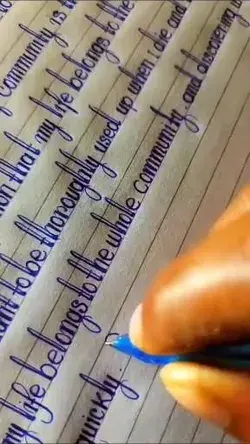 Community is
that my life belongs to the
to be thoroughly used up when i die and
my life belongs to the whole community, and discovering
quickly.